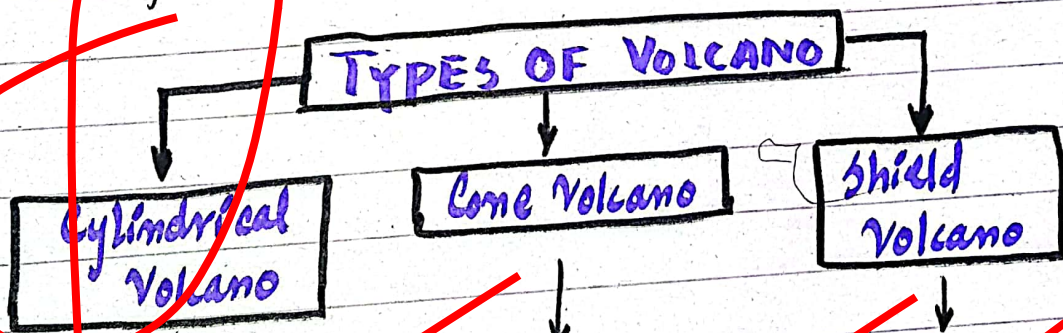 TYPES OF VOLCANO
Cylindrical
Volcano
Cone Volcano
Shield
Volcano